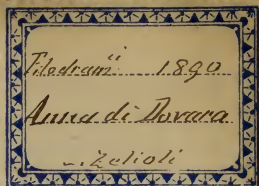 Filodram.ci 1890
Anna di Dovara
Zelioli